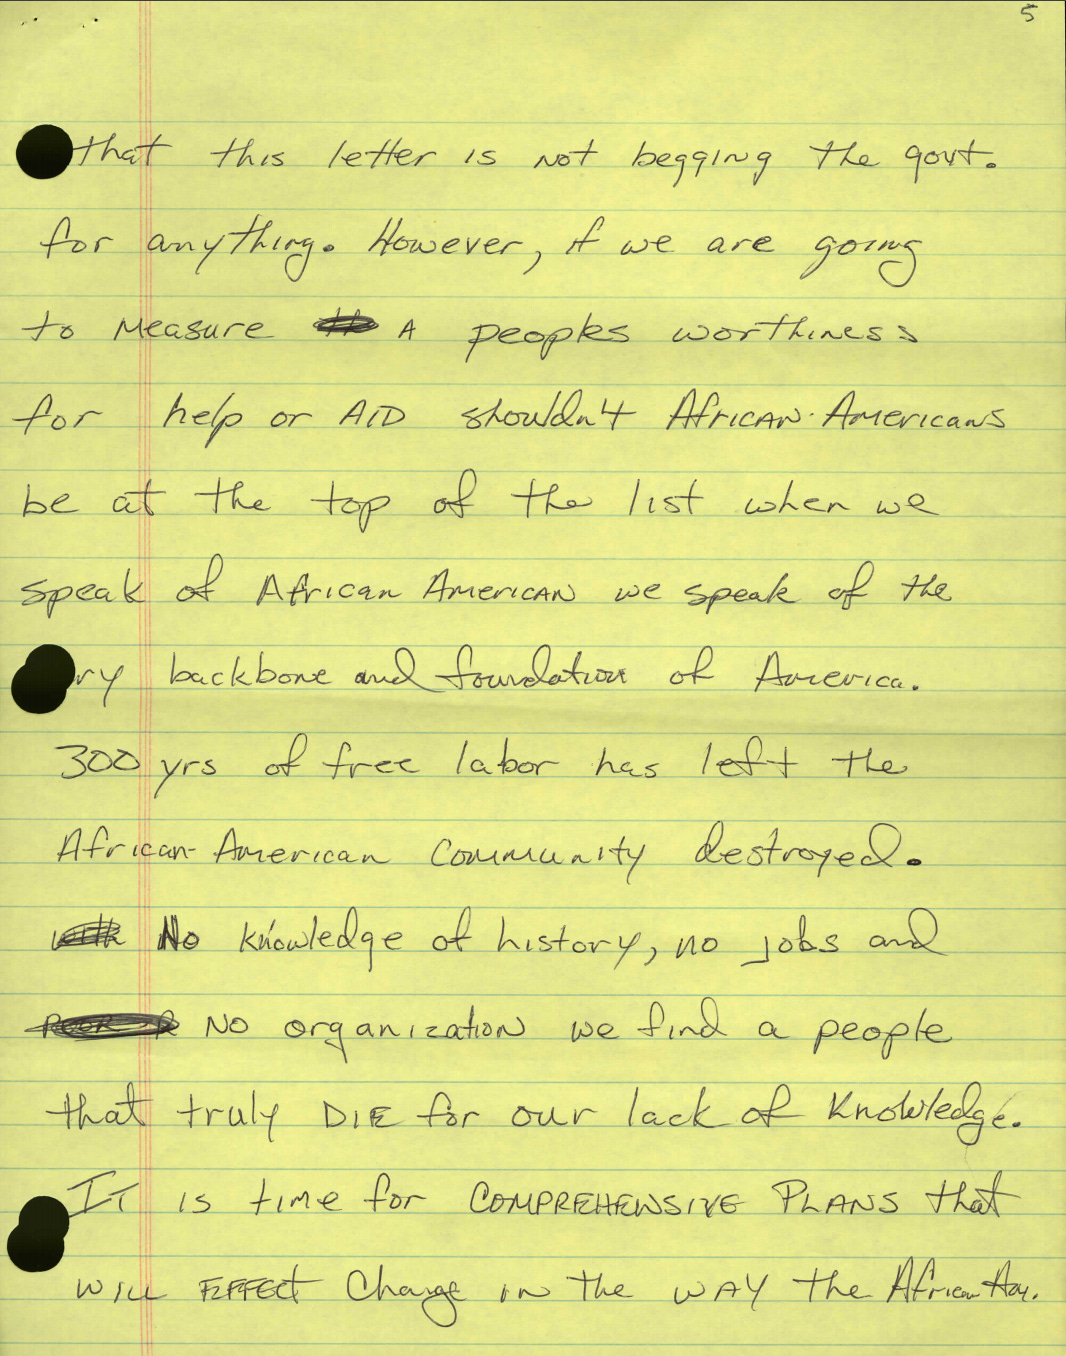 5
that this letter is not begging the govt.
for anything. However, if we are going
to measure A peoples worthiness
for help or AID shouldn't African-Americans
be at the top of the list when we
speak of African American we speak of the
ry backbone and foundation of America.
300 yrs of free labor has left the
African-American community destroyed.
No knowledge of history, no jobs and
NO organization we find a people
that truly DIE for our lack of Knowledge.
IT is time for COMPREHENSIVE PLANS that
will EFFECT Change in the WAY the African Am.